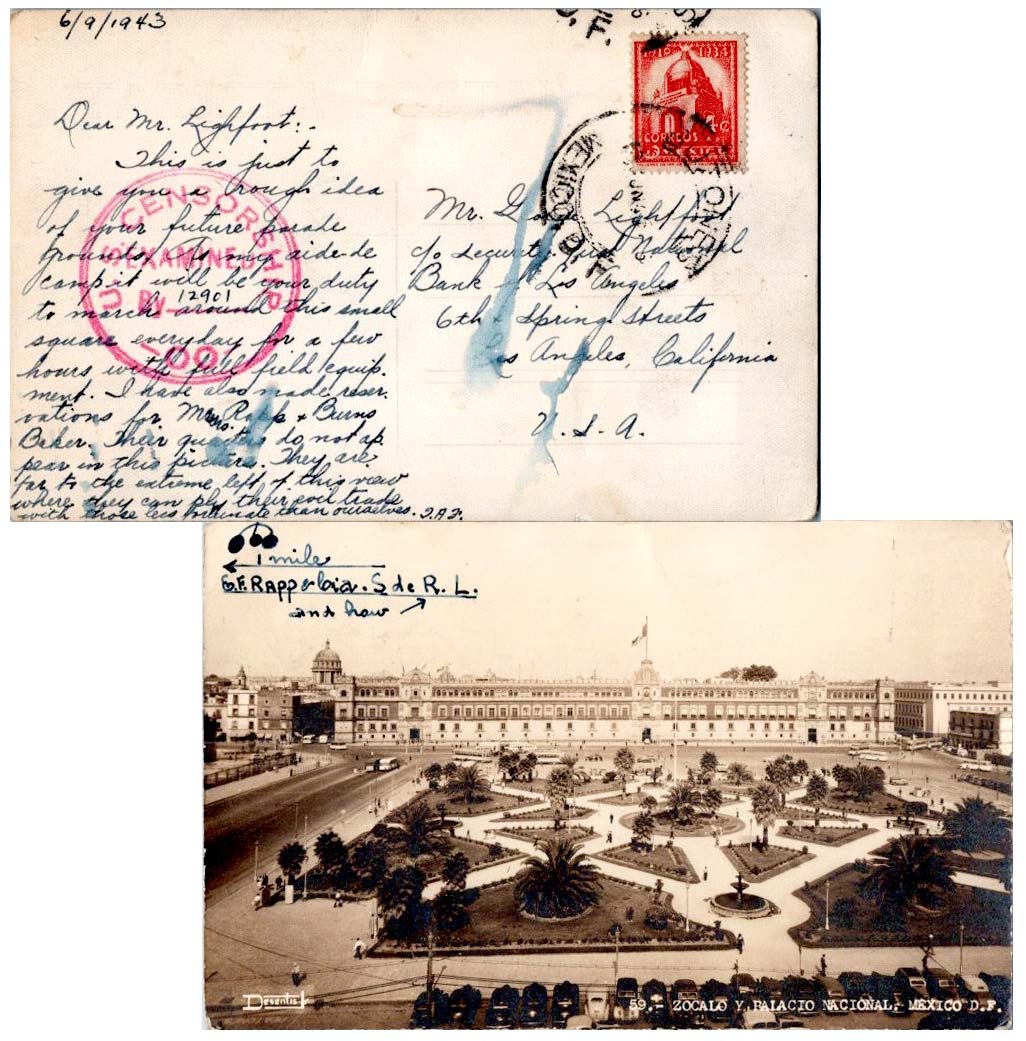 6/9/1943
Dear Mr. Lighfoot:-
This is just to
give you a rough idea
of your future parade
grounds. As my aide-de
camp it will be your duty
to march around this small
square everyday for a few
hours with full field equip-
ment. I have also made reser-
vations for Mr. Rapp & Burns
Baker. Their quarters do not ap
pear in this picture. They are
far to the extreme left of this view
where they can ply their evil trade
with those less fortunate than ourselves. J.A.F.
U.S. CENSORSHIP
EXAMINED
By 12901
1910 1934
4¢
CORREOS
MEXICO
Mr. Lighfoot
c/o Security First National
Bank of Los Angeles
6th & Spring Streets
Los Angeles, California
U.S.A.
1 mile
G.F. Rapp & Cia. S de R. L.
and how
Desentis Jr
59.- ZOCALO Y PALACIO NACIONAL. MEXICO D.F.